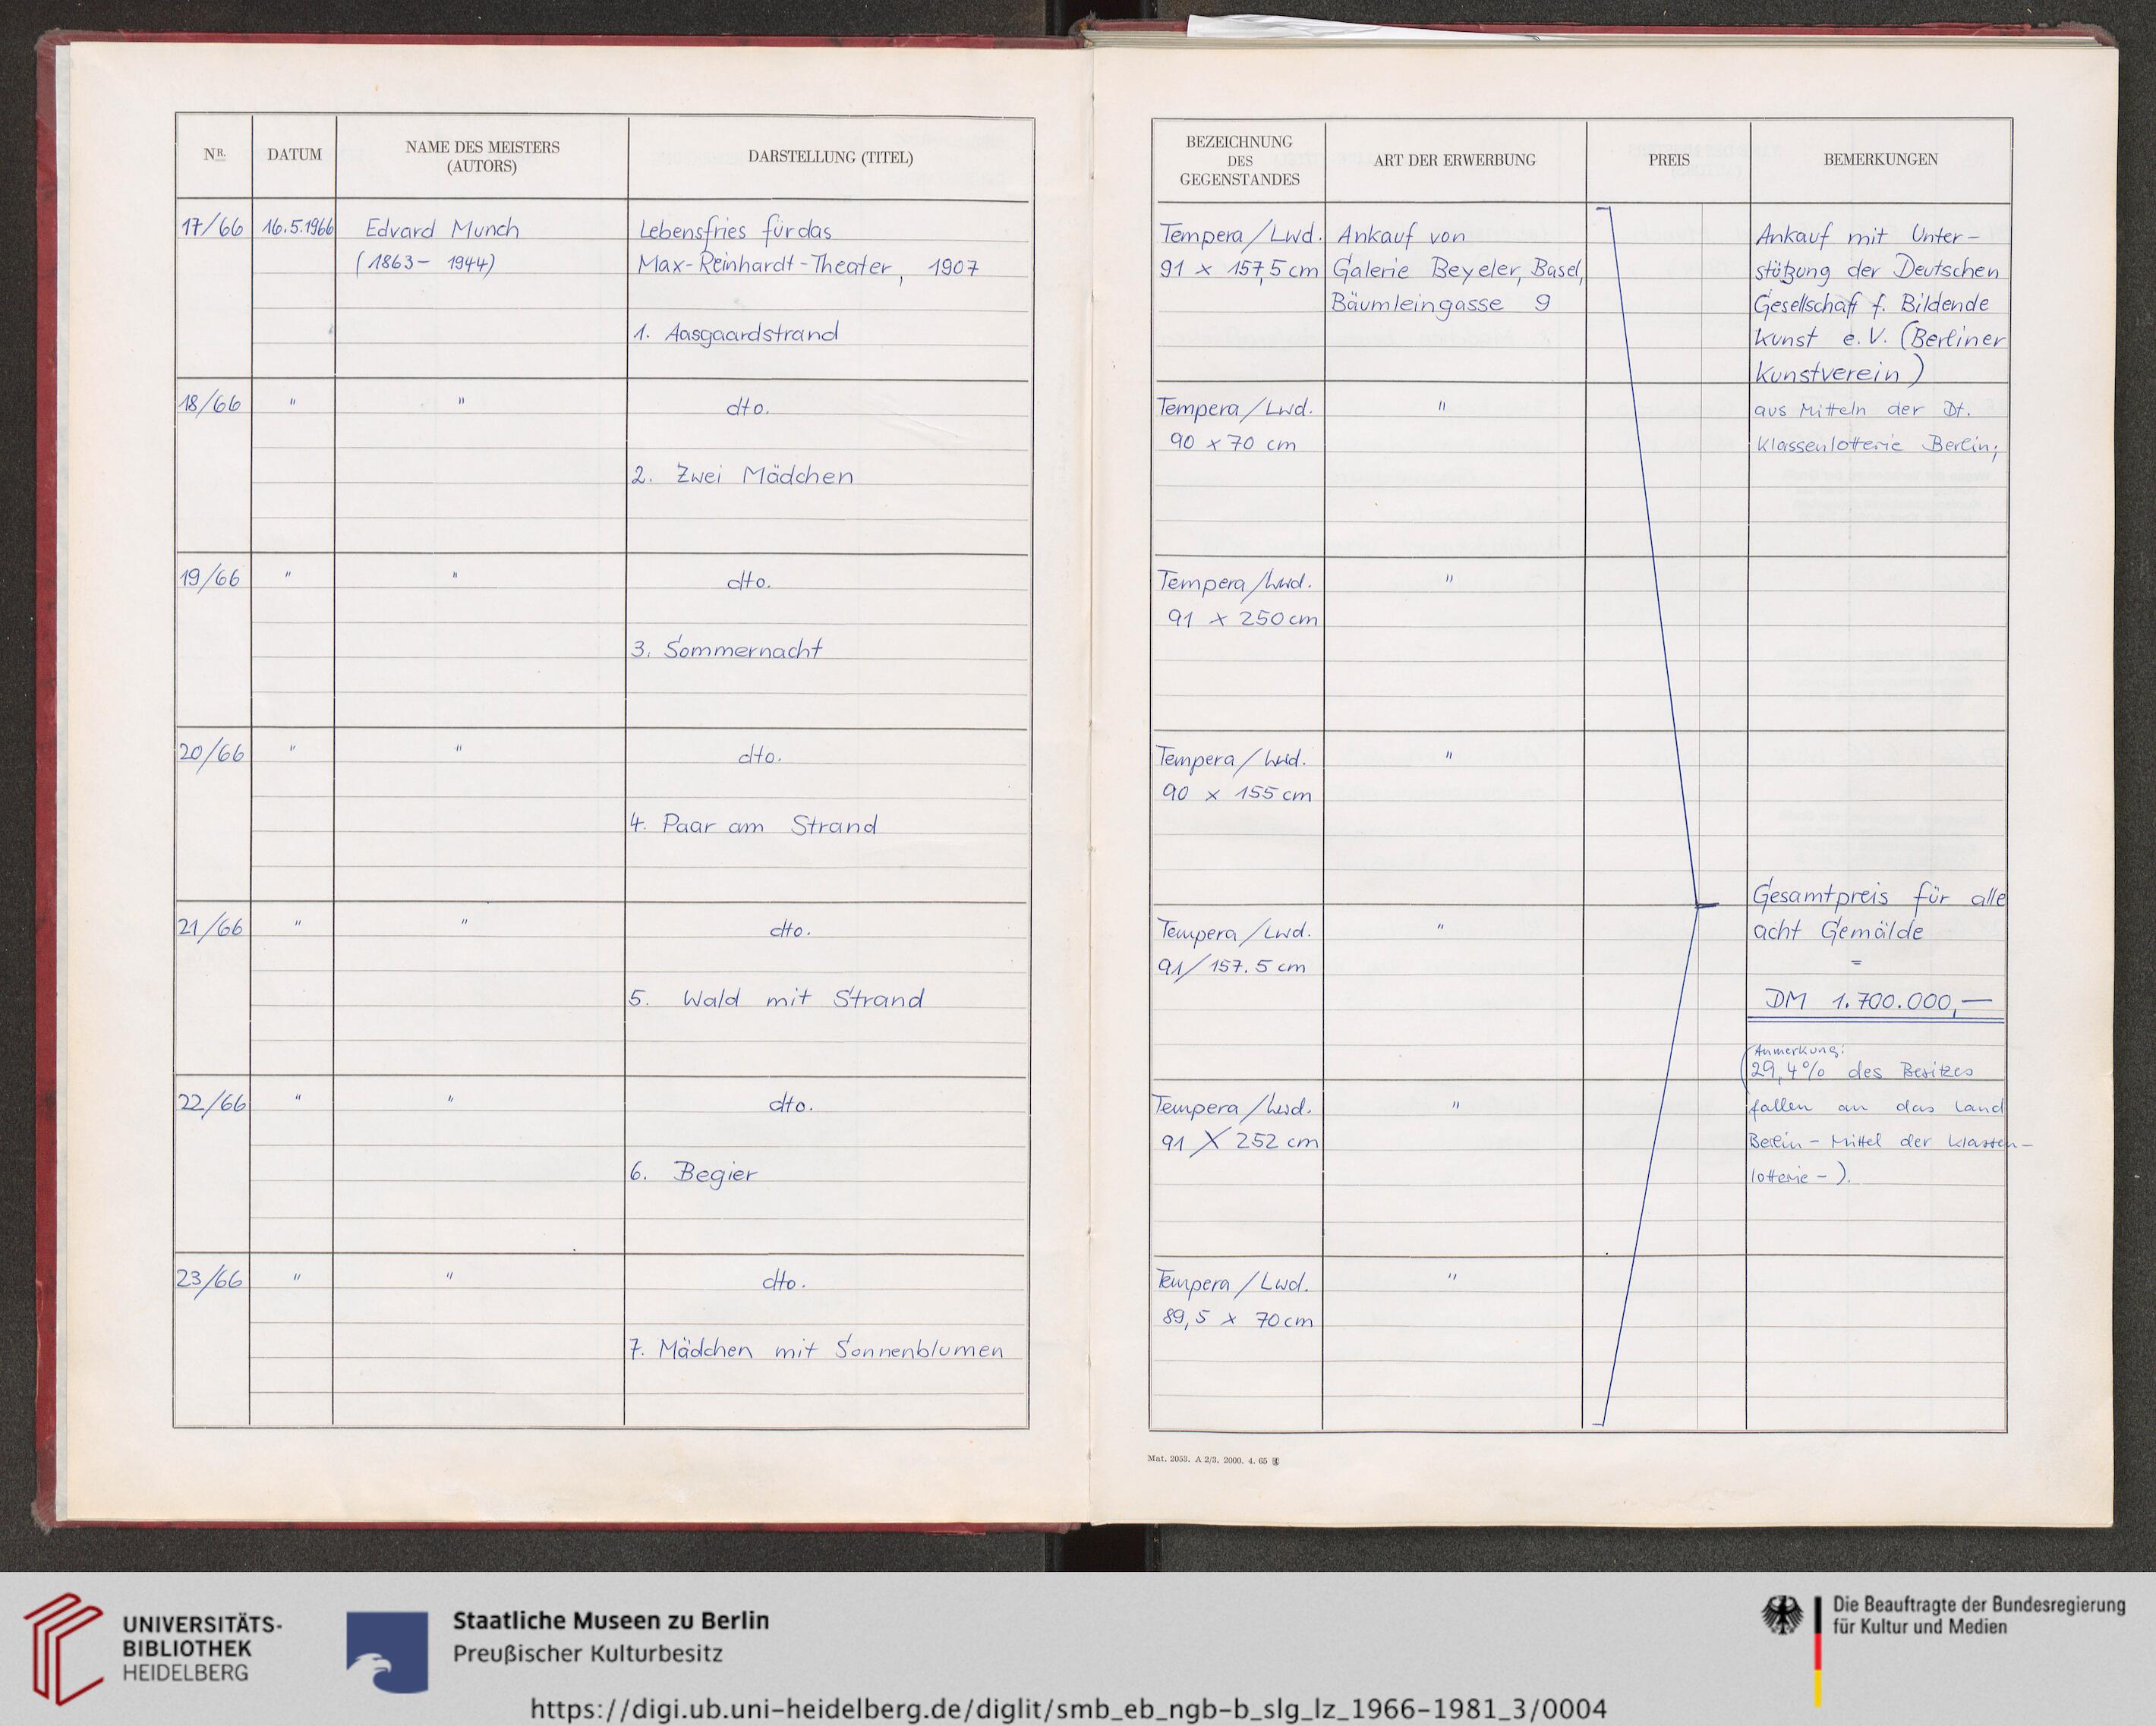 NR.
DATUM
NAME DES MEISTERS
(AUTORS)
DARSTELLUNG (TITEL)
17/66 16.5.1966 Edvard Munch Lebensfries für das
(1863– 1944) Max-Reinhardt-Theater, 1907
1. Aasgaardstrand
18/66 " " dto.
2. Zwei Mädchen
19/66 " " dto.
3. Sommernacht
20/66 " " dto.
4. Paar am Strand
21/66 " " dto.
5. Wald mit Strand
22/66 " " dto.
6. Begier
23/66 " " dto.
7. Mädchen mit Sonnenblumen
BEZEICHNUNG
DES
GEGENSTANDES
ART DER ERWERBUNG
PREIS
BEMERKUNGEN
Tempera/Lwd. Ankauf von
91 x 157,5 cm Galerie Beyeler, Basel,
Bäumleingasse 9
Tempera/Lwd. "
90 x 70 cm
Tempera/Lwd. "
91 x 250 cm
Tempera/Lwd. "
90 x 155 cm
Tempera/Lwd. "
91/157.5 cm
Tempera/Lwd. "
91 X 252 cm
Tempera/Lwd. "
89,5 x 70 cm
Ankauf mit Unter-
stützung der Deutschen
Gesellschaft f. Bildende
Kunst e.V. (Berliner
Kunstverein)
aus Mitteln der Dt.
Klassenlotterie Berlin;
Gesamtpreis für alle
acht Gemälde
=
DM 1.700.000,—
(Anmerkung:
29,4% des Besitzes
fallen an das Land
Berlin - Mittel der Klassen-
lotterie -).
Mat. 2053. A 2/3. 2000. 4. 65
UNIVERSITÄTS-
BIBLIOTHEK
HEIDELBERG
Staatliche Museen zu Berlin
Preußischer Kulturbesitz
Die Beauftragte der Bundesregierung
für Kultur und Medien
https://digi.ub.uni-heidelberg.de/diglit/smb_eb_ngb-b_slg_lz_1966-1981_3/0004